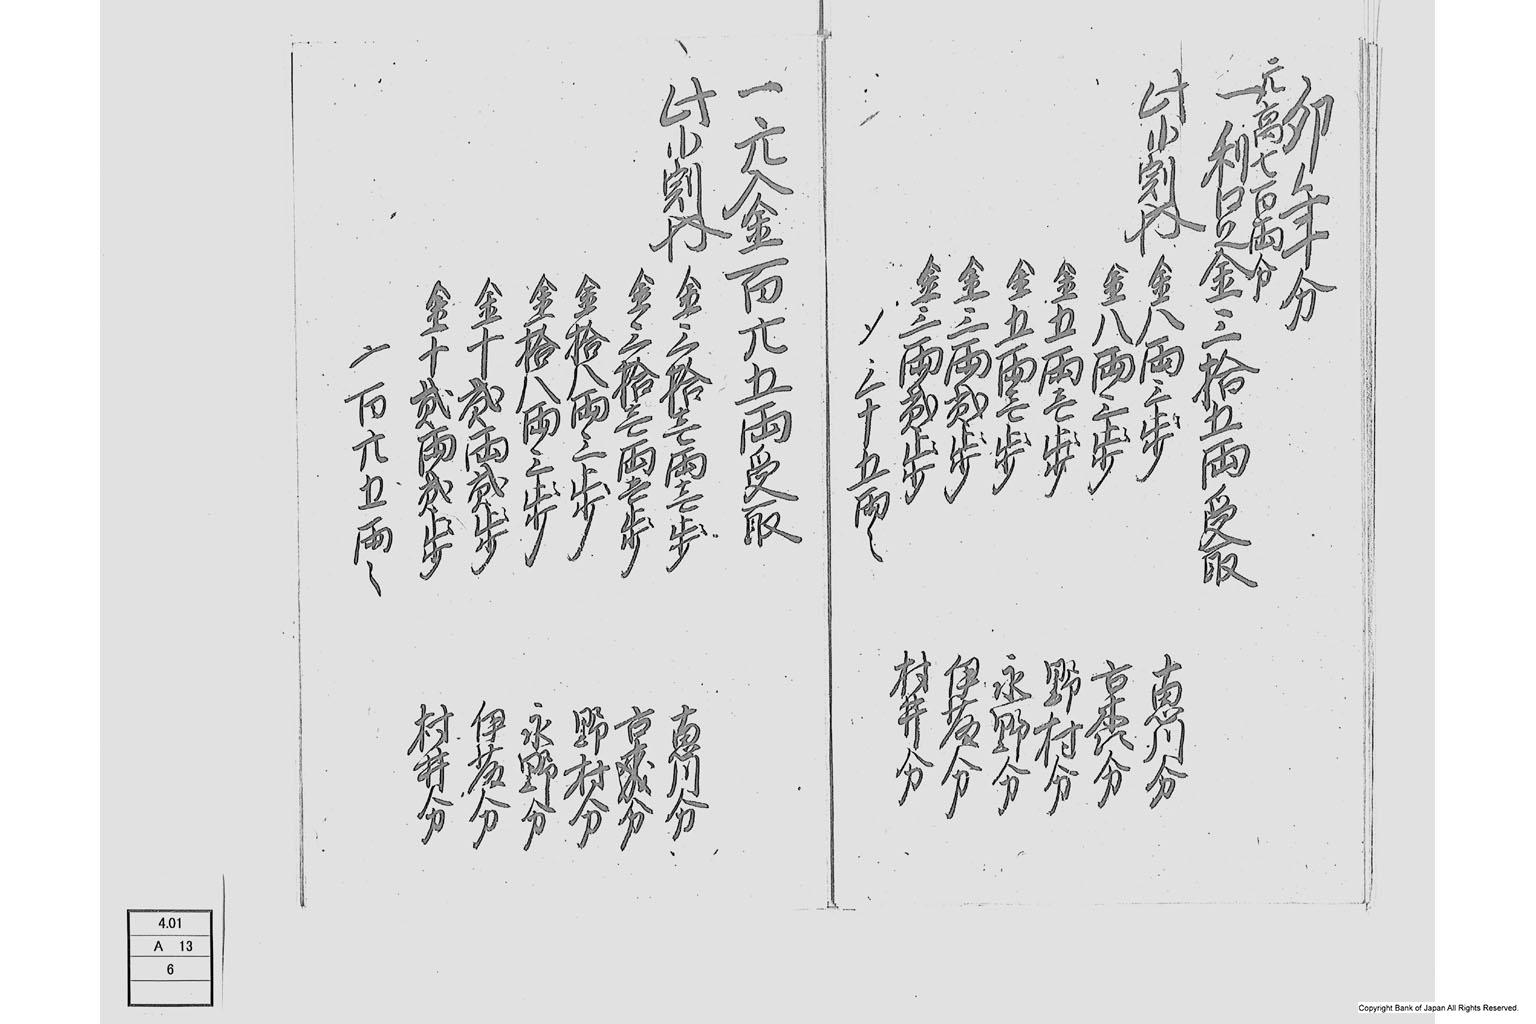 卯年分
元高七百両分
一利足金三拾五両受取
此小割内
金八両三歩 恵川分
金八両三歩 分
金五両壱歩 野村分
金五両壱歩 永野分
金三両弐歩 伊藤分
金三両弐歩 村井分
〆三十五両也
一元入金百六五両受取
此小割内
金三拾壱両壱歩 恵川分
金三拾壱両壱歩 分
金拾八両三歩 野村分
金拾八両三歩 永野分
金十弐両弐歩 伊藤分
金十弐両弐歩 村井分
〆百六五両也
4.01
A 13
6
Copyright Bank of Japan All Rights Reserved.